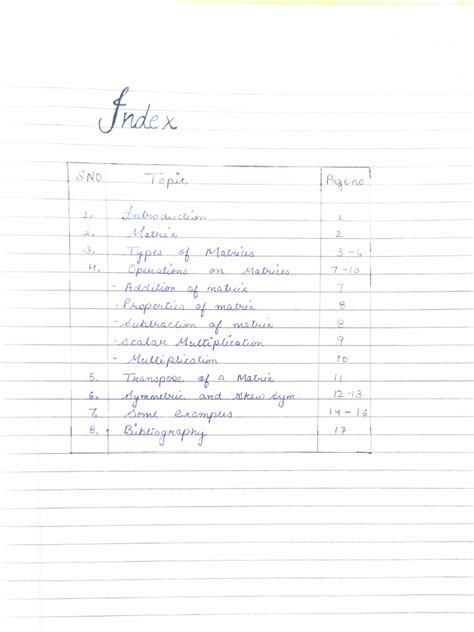 Index
S.NO Topic Page no.
1. Introduction 1
2. Matrix 2
3. Types of Matrices 3-6
4. Operations on Matrices 7-10
- Addition of matrix 7
- Properties of matrix 8
- Subtraction of matrix 8
- Scalar Multiplication 9
- Multiplication 10
5. Transpose of a Matrix 11
6. Symmetric and Skew Sym. 12-13
7. Some examples 14-16
8. Bibliography 17